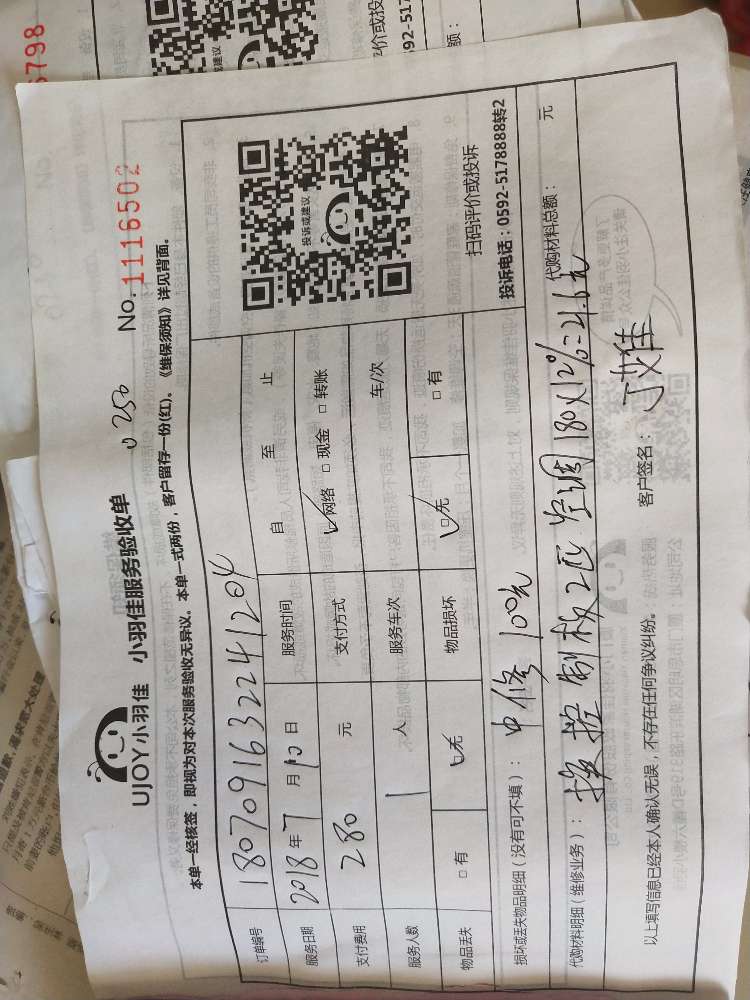 UJOY小羽佳 小羽佳服务验收单
250
No. 1116502
本单一经核签，即视为对本次服务验收无异议。本单一式两份，客户留存一份(红)。《维保须知》详见背面。
订单编号 1807091632241204
服务日期 2018年7月10日 服务时间 自 至 止
支付费用 280 元 支付方式 网络 现金 转账
服务人数 1 人 服务车次 车/次
物品丢失 有 无 物品损坏 无 有
投诉或建议
扫码评价或投诉
投诉电话：0592-5178888转2
损坏或丢失物品明细（没有可不填）： 中修100元
代购材料明细（维修业务）： 换控制板2匹空调180X12%= 代购材料总额： 元
以上填写信息已经本人确认无误，不存在任何争议纠纷。 客户签名：
6798